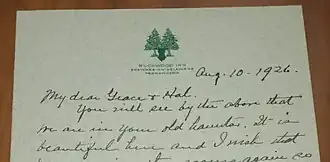 BUCKWOOD INN
SHAWNEE-ON-DELAWARE
PENNSYLVANIA
Aug. 10 - 1926.
My dear Grace & Hal.
You will see by the above that
we are in your old haunts. It is
beautiful here and I wish that
again